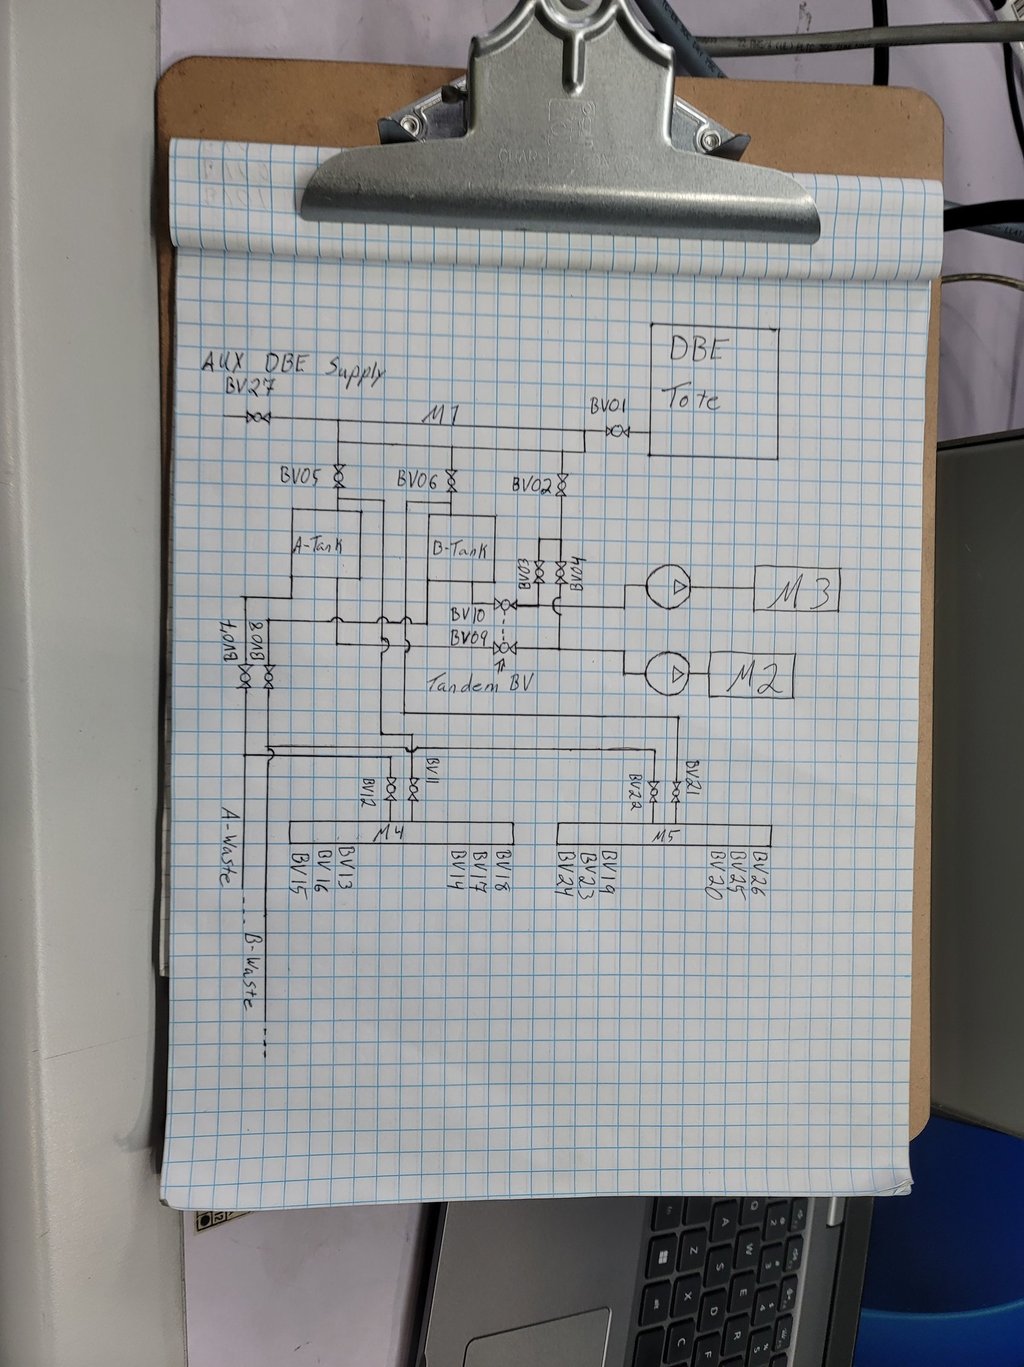 DBE
Tote
AUX DBE Supply
BV27
M1
BV01
BV05
BV06
BV02
A-Tank
B-Tank
BV03
BV04
M3
BV10
BV09
BV07
BV08
Tandem BV
M2
BV12
BV11
BV22
BV21
M4
M5
A-Waste
BV15
BV16
BV13
BV14
BV17
BV18
BV24
BV23
BV19
BV20
BV25
BV26
B-Waste
Q
A
Z
W
S
X
E
D
C
R
F